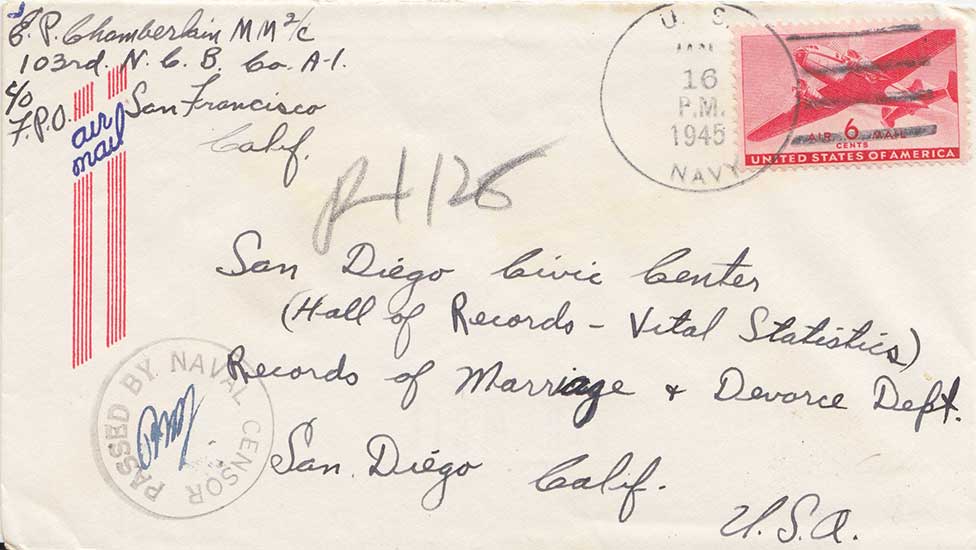 E. P. Chamberlain MM 2/c
103rd. N. C. B. Co. A-1.
c/o
F.P.O. San Francisco
Calif.
air
mail
U. S.
16
P.M.
1945
NAVY
AIR 6 MAIL
CENTS
UNITED STATES OF AMERICA
1126
San Diego Civic Center
(Hall of Records - Vital Statistics)
Records of Marriage + Devorce Dept.
San Diego Calif.
U.S.A.
PASSED BY NAVAL CENSOR